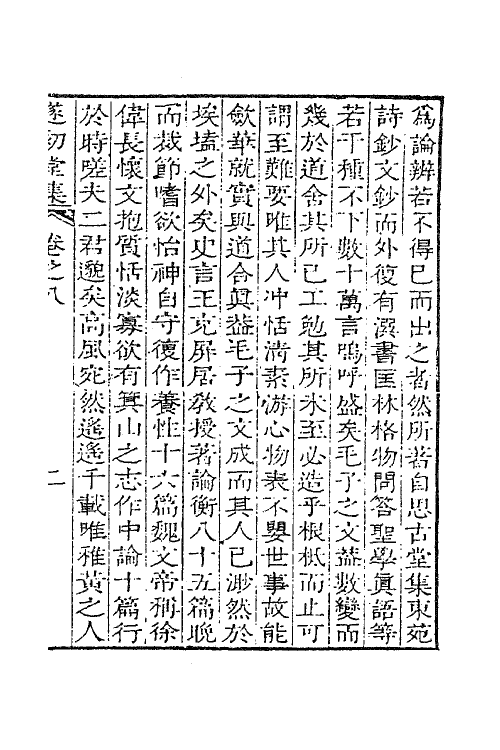 爲論辨若不得巳而出之者然所著自思古堂集東苑
詩鈔文鈔而外復有潠書匡林格物問答聖學眞語等
若干種不下數十萬言嗚呼盛矣毛子之文葢數變而
幾於道舍其所已工勉其所未至必造乎根柢而止可
謂至難要唯其人冲恬淸素游心物表不嬰世事故能
斂華就實與道合眞葢毛子之文成而其人已渺然於
埃壒之外矣史言王充屏居敎授著論衡八十五篇晚
而裁節嗜欲怡神自守復作養性十六篇魏文帝稱徐
偉長懷文抱質恬淡寡欲有箕山之志作中論十篇行
於時嗟夫二君邈矣高風宛然遙遙千載唯稚黃之人
遂初堂集 卷之八 二